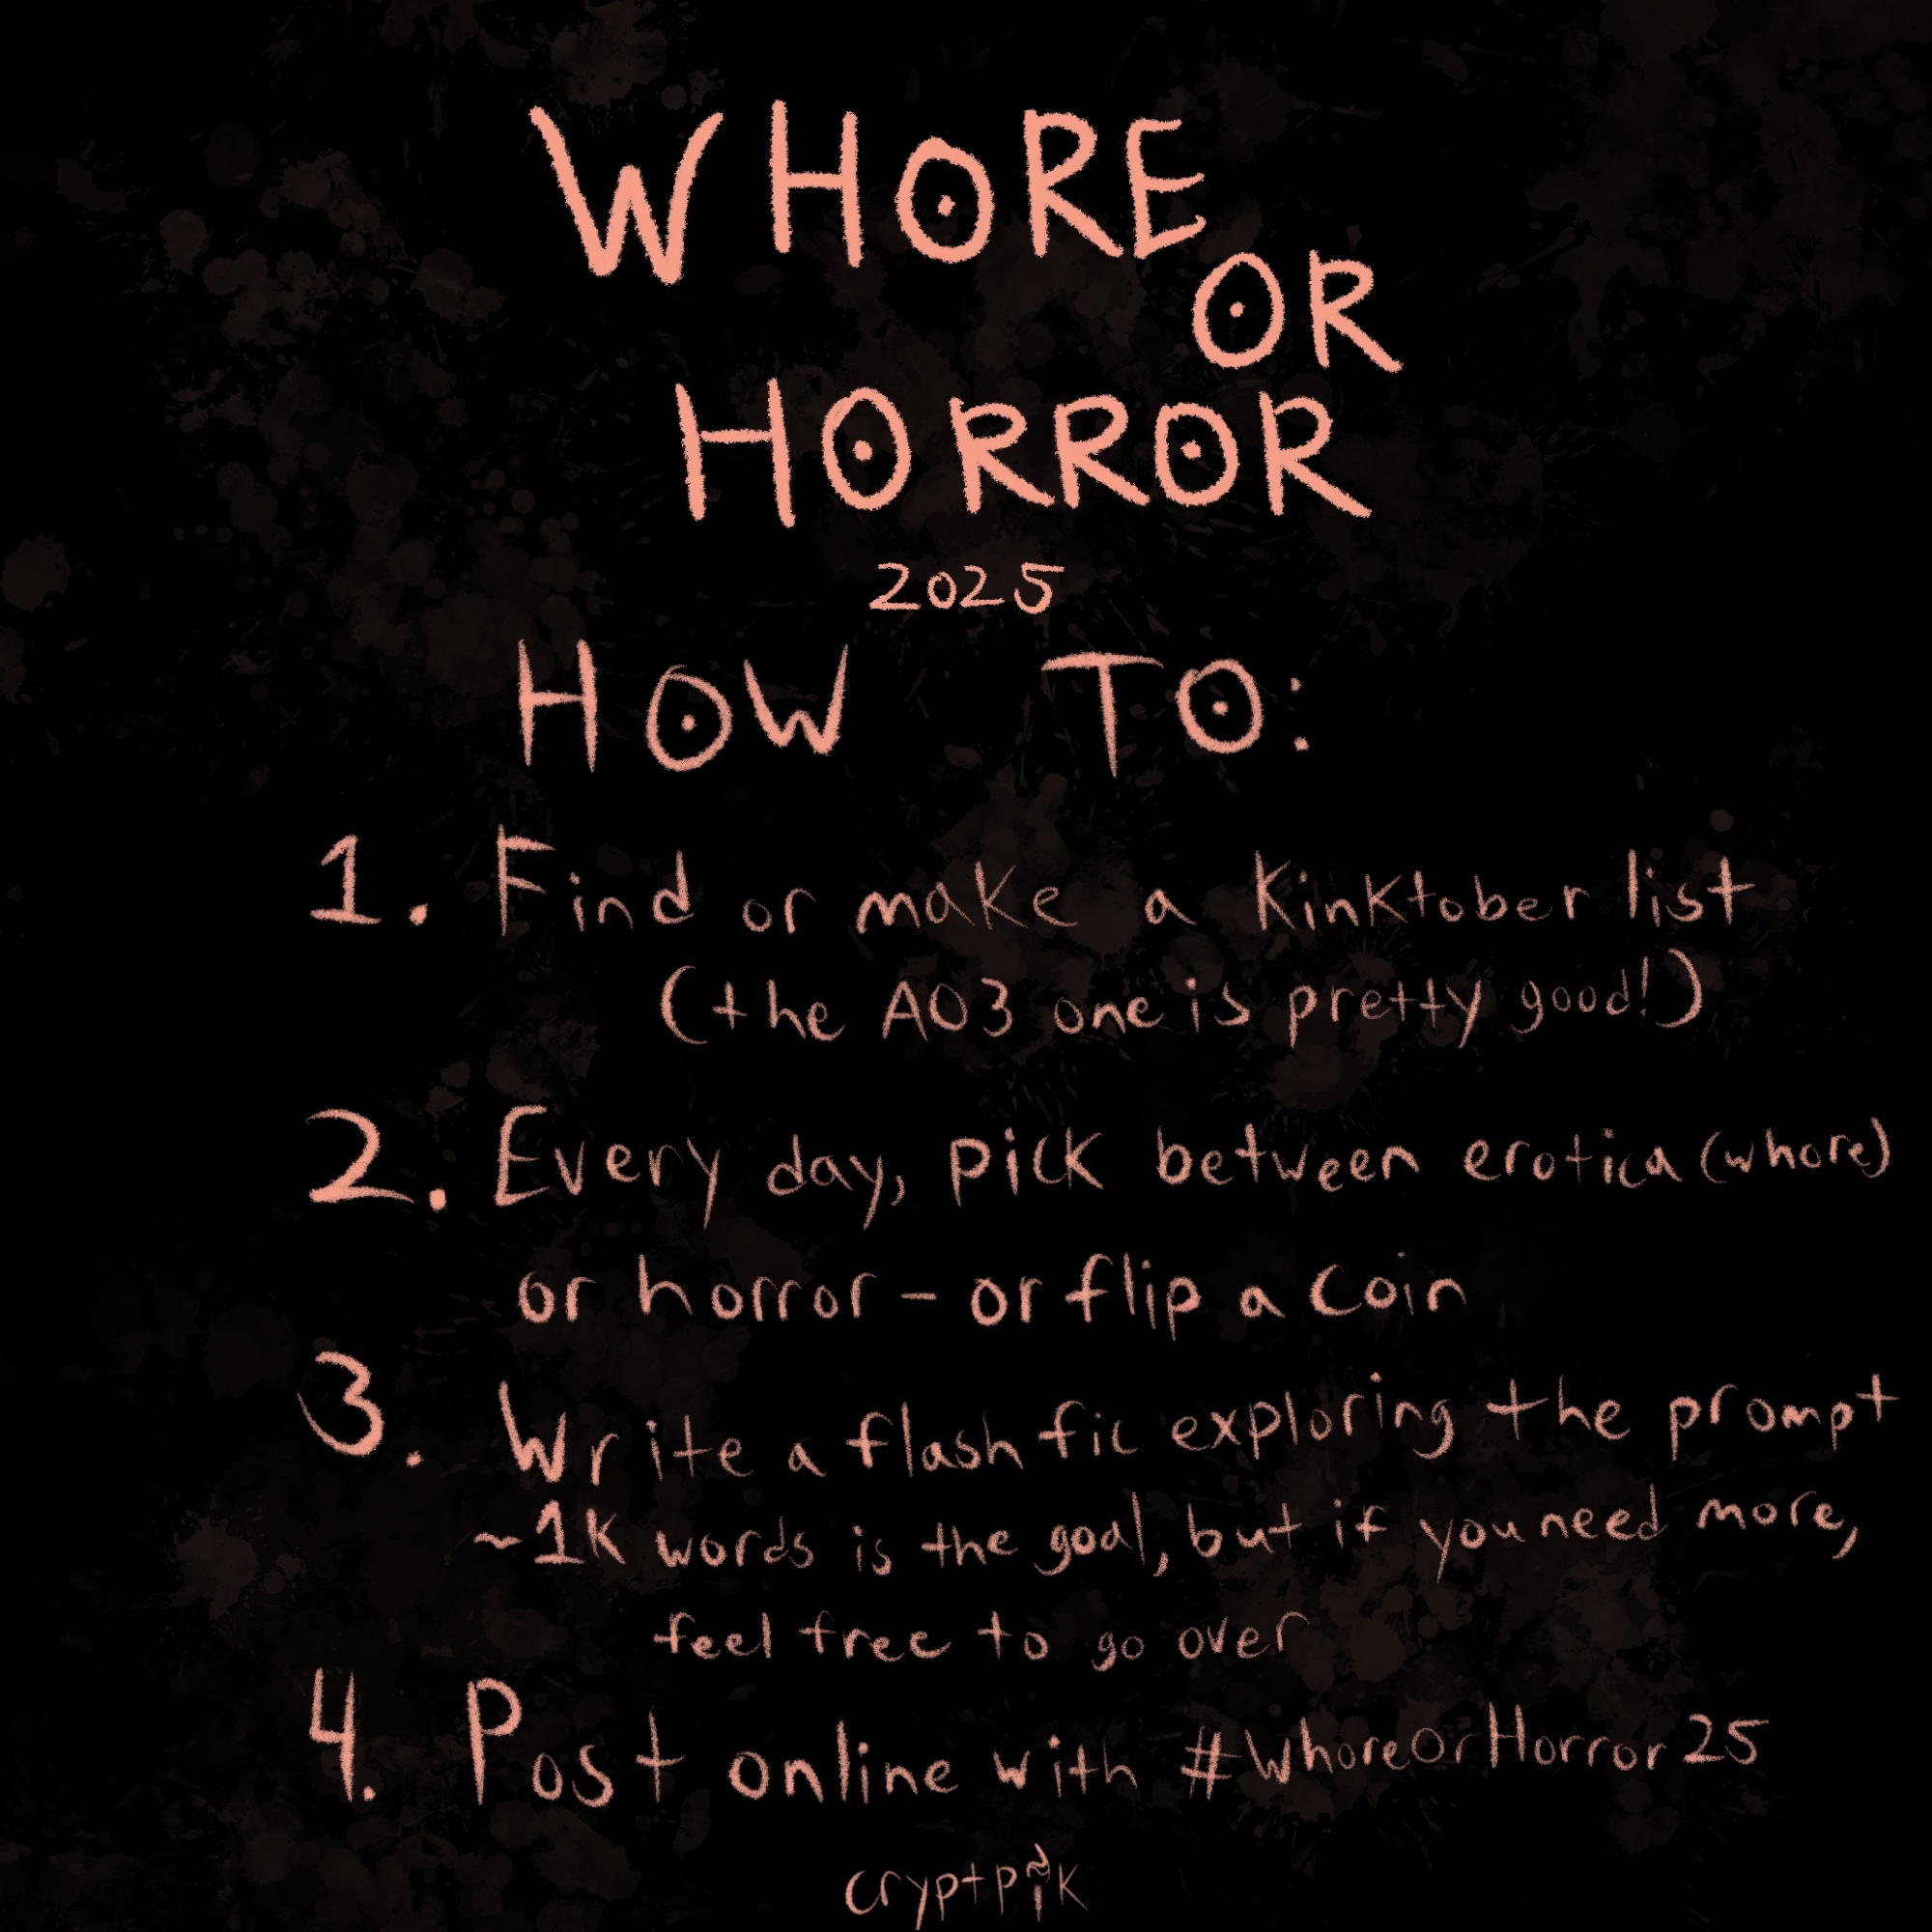 WHORE
OR
HORROR
2025
HOW TO:
1. Find or make a Kinktober list
(the AO3 one is pretty good!)
2. Every day, pick between erotica (whore)
or horror - or flip a coin
3. Write a flash fic exploring the prompt
~1K words is the goal, but if you need more,
feel free to go over
4. Post online with #WhoreOrHorror25
cryptpik